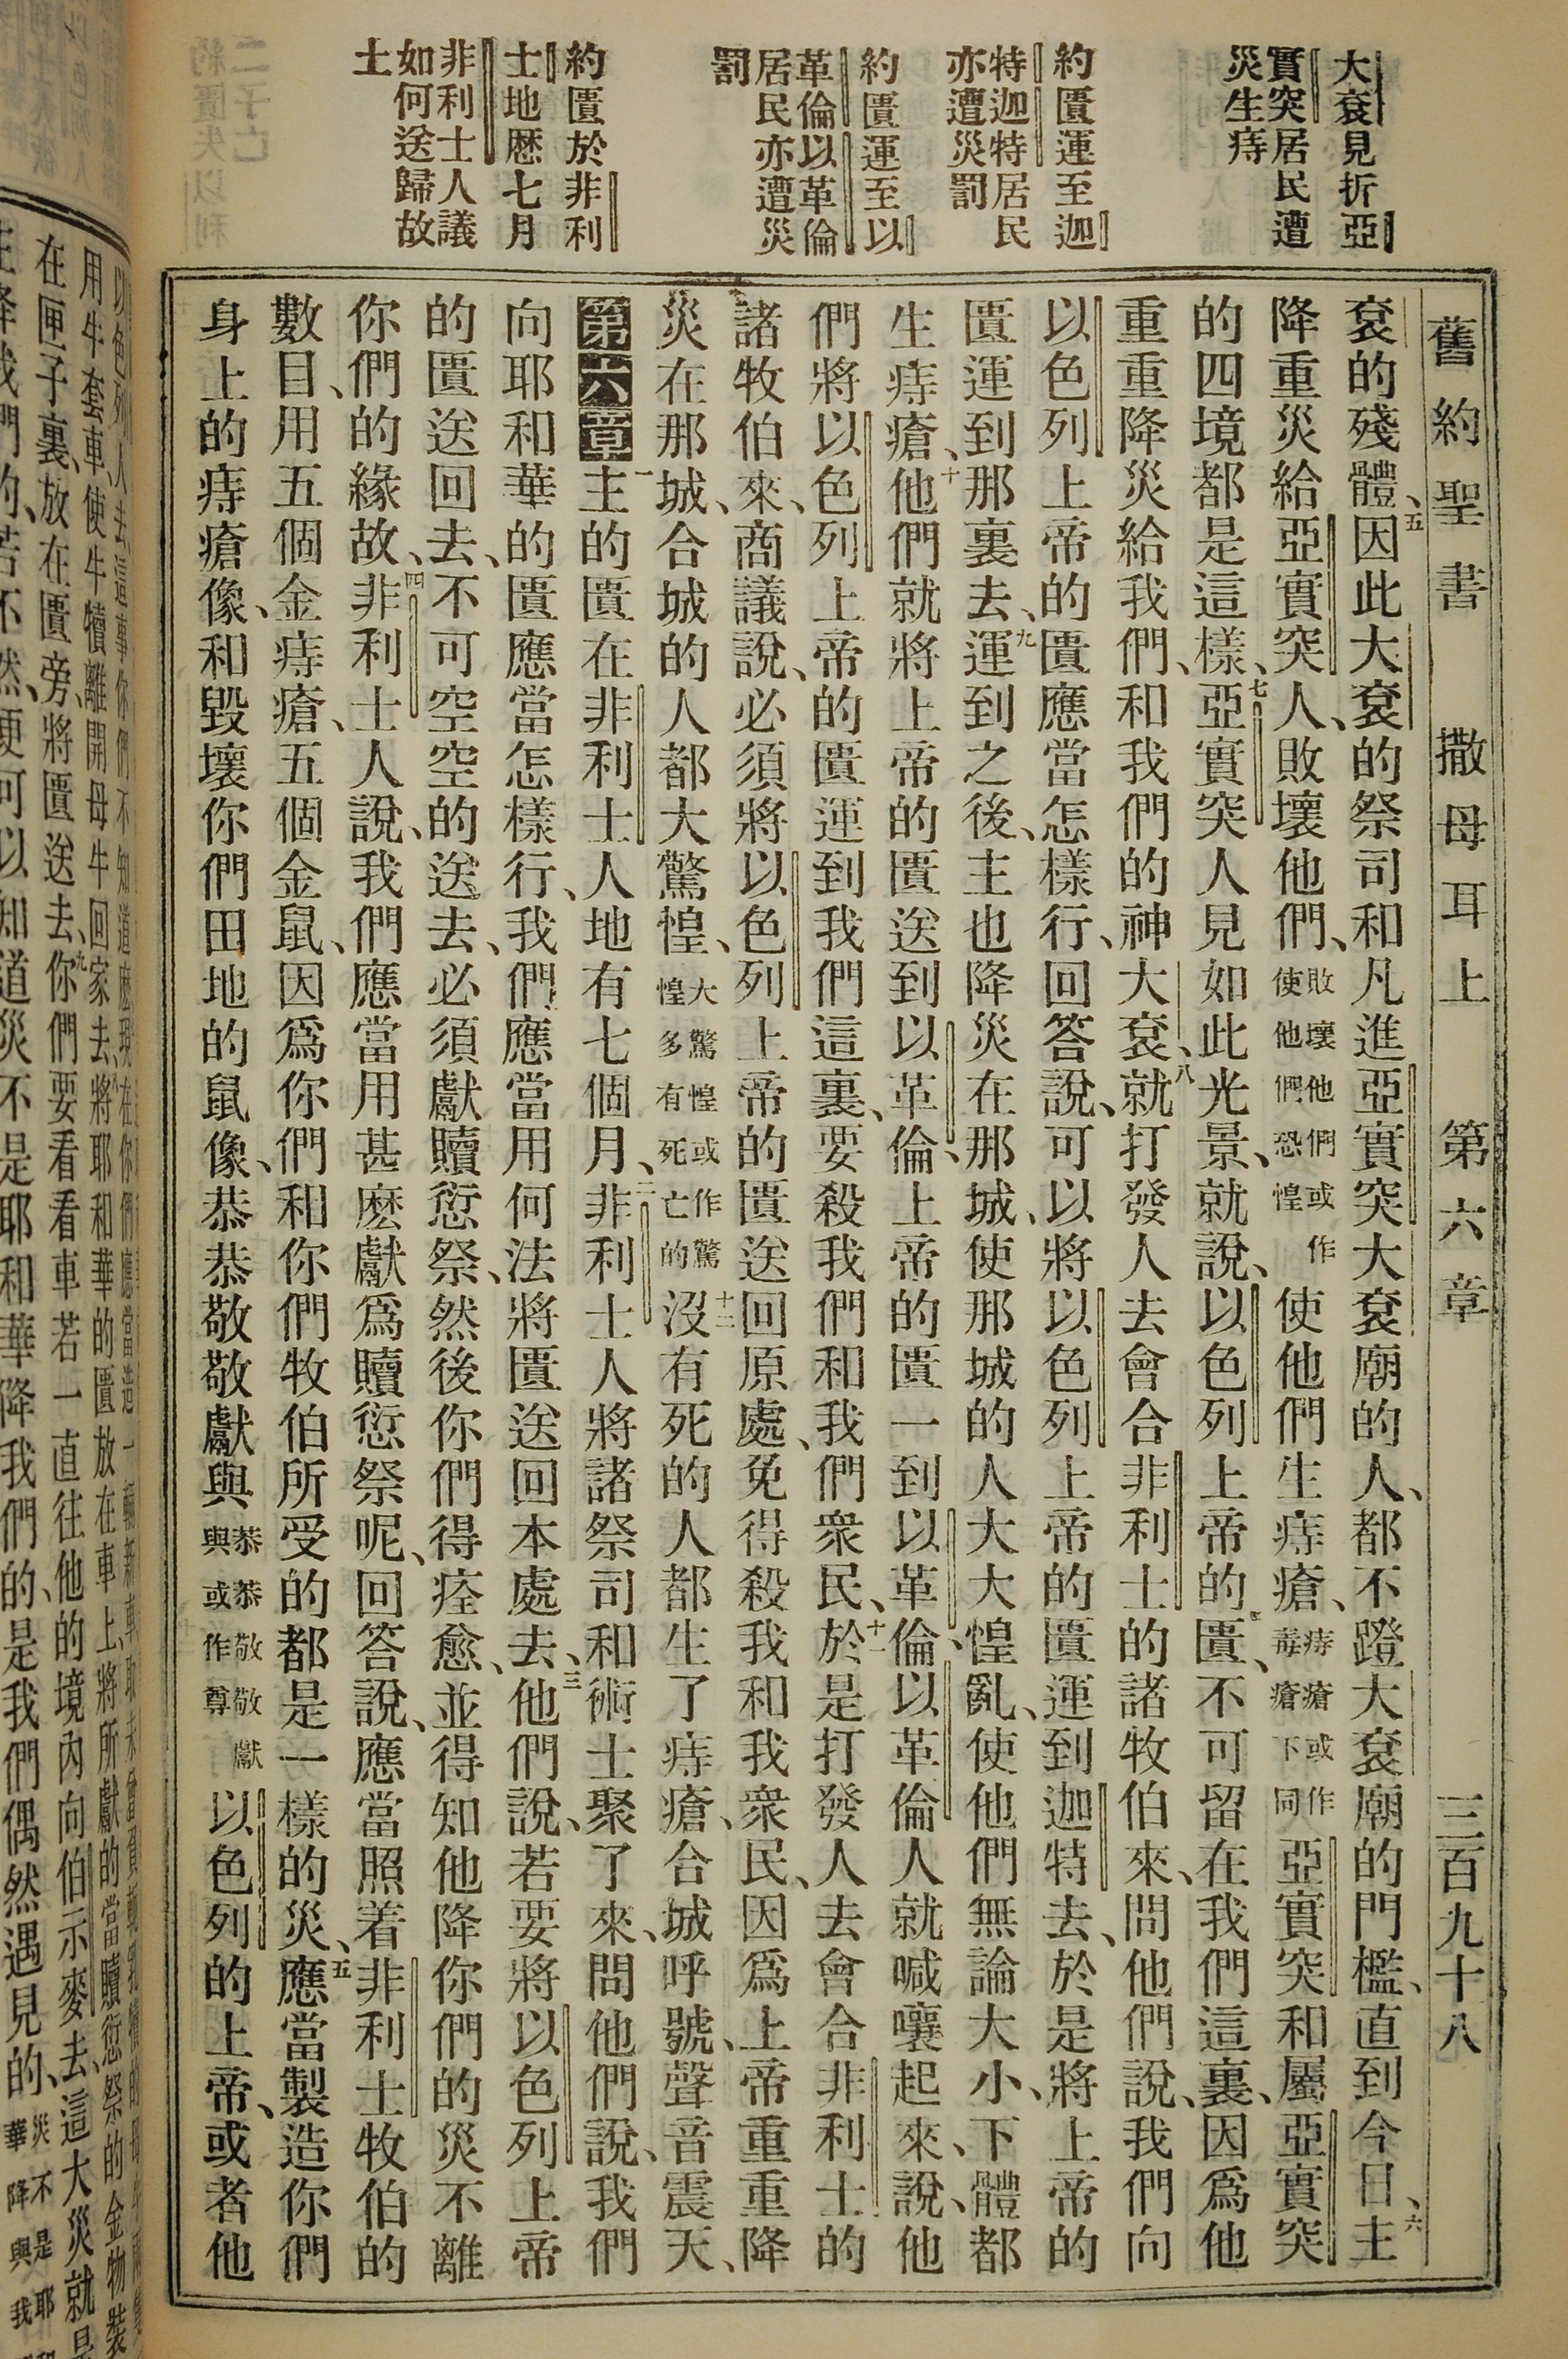 大袞見折亞
實突居民遭
災生痔
約匱運至迦
特迦特居民
亦遭災罰
約匱運至以
革倫以革倫
居民亦遭災
罰
約匱於非利
士地歷七月
非利士人議
如何送歸故
土
舊約聖書 撒母耳上 第六章 三百九十八
袞的殘體、五因此大袞的祭司和凡進亞實突大袞廟的人、都不蹬大袞廟的門檻、直到今日、六主
降重災給亞實突人、敗壞他們、敗壞他們或作使他們恐惶使他們生痔瘡、痔瘡或作毒瘡下同亞實突和屬亞實突
的四境都是這樣、七亞實突人見如此光景、就說、以色列上帝的匱、不可留在我們這裏、因爲他
重重降災給我們、和我們的神大袞、八就打發人去會合非利士的諸牧伯來、問他們說、我們向
以色列上帝的匱應當怎樣行、回答說、可以將以色列上帝的匱運到迦特去、於是將上帝的
匱運到那裏去、九運到之後、主也降災在那城、使那城的人大大惶亂、使他們無論大小、下體都
生痔瘡、十他們就將上帝的匱送到以革倫、上帝的匱一到以革倫、以革倫人就喊嚷起來、說、他
們將以色列上帝的匱運到我們這裏、要殺我們和我們衆民、十一於是打發人去會合非利士的
諸牧伯來、商議說、必須將以色列上帝的匱送回原處、免得殺我和我衆民、因爲上帝重重降
災在那城、合城的人都大驚惶、大驚惶或作驚惶多有死亡的十二沒有死的人都生了痔瘡、合城呼號、聲音震天、
第六章 一主的匱在非利士人地有七個月、二非利士人將諸祭司和術士聚了來、問他們說、我們
向耶和華的匱應當怎樣行、我們應當用何法將匱送回本處去、三他們說、若要將以色列上帝
的匱送回去、不可空空的送去、必須獻贖愆祭、然後你們得痊愈、並得知他降你們的災不離
你們的緣故、四非利士人說、我們應當用甚麽獻爲贖愆祭呢、回答說、應當照着非利士牧伯的
數目、用五個金痔瘡、五個金鼠、因爲你們和你們牧伯所受的都是一樣的災、五應當製造你們
身上的痔瘡像、和毀壞你們田地的鼠像、恭恭敬敬獻與恭恭敬敬獻與或作尊以色列的上帝、或者他
用牛套車、使牛犢離開母牛回家去、將耶和華的匱放在車上、將所獻的當贖愆祭的金物裝
在匣子裏、放在匱旁、將匱送去、九你們要看看車若一直往他的境內向伯示麥去、這大災就是